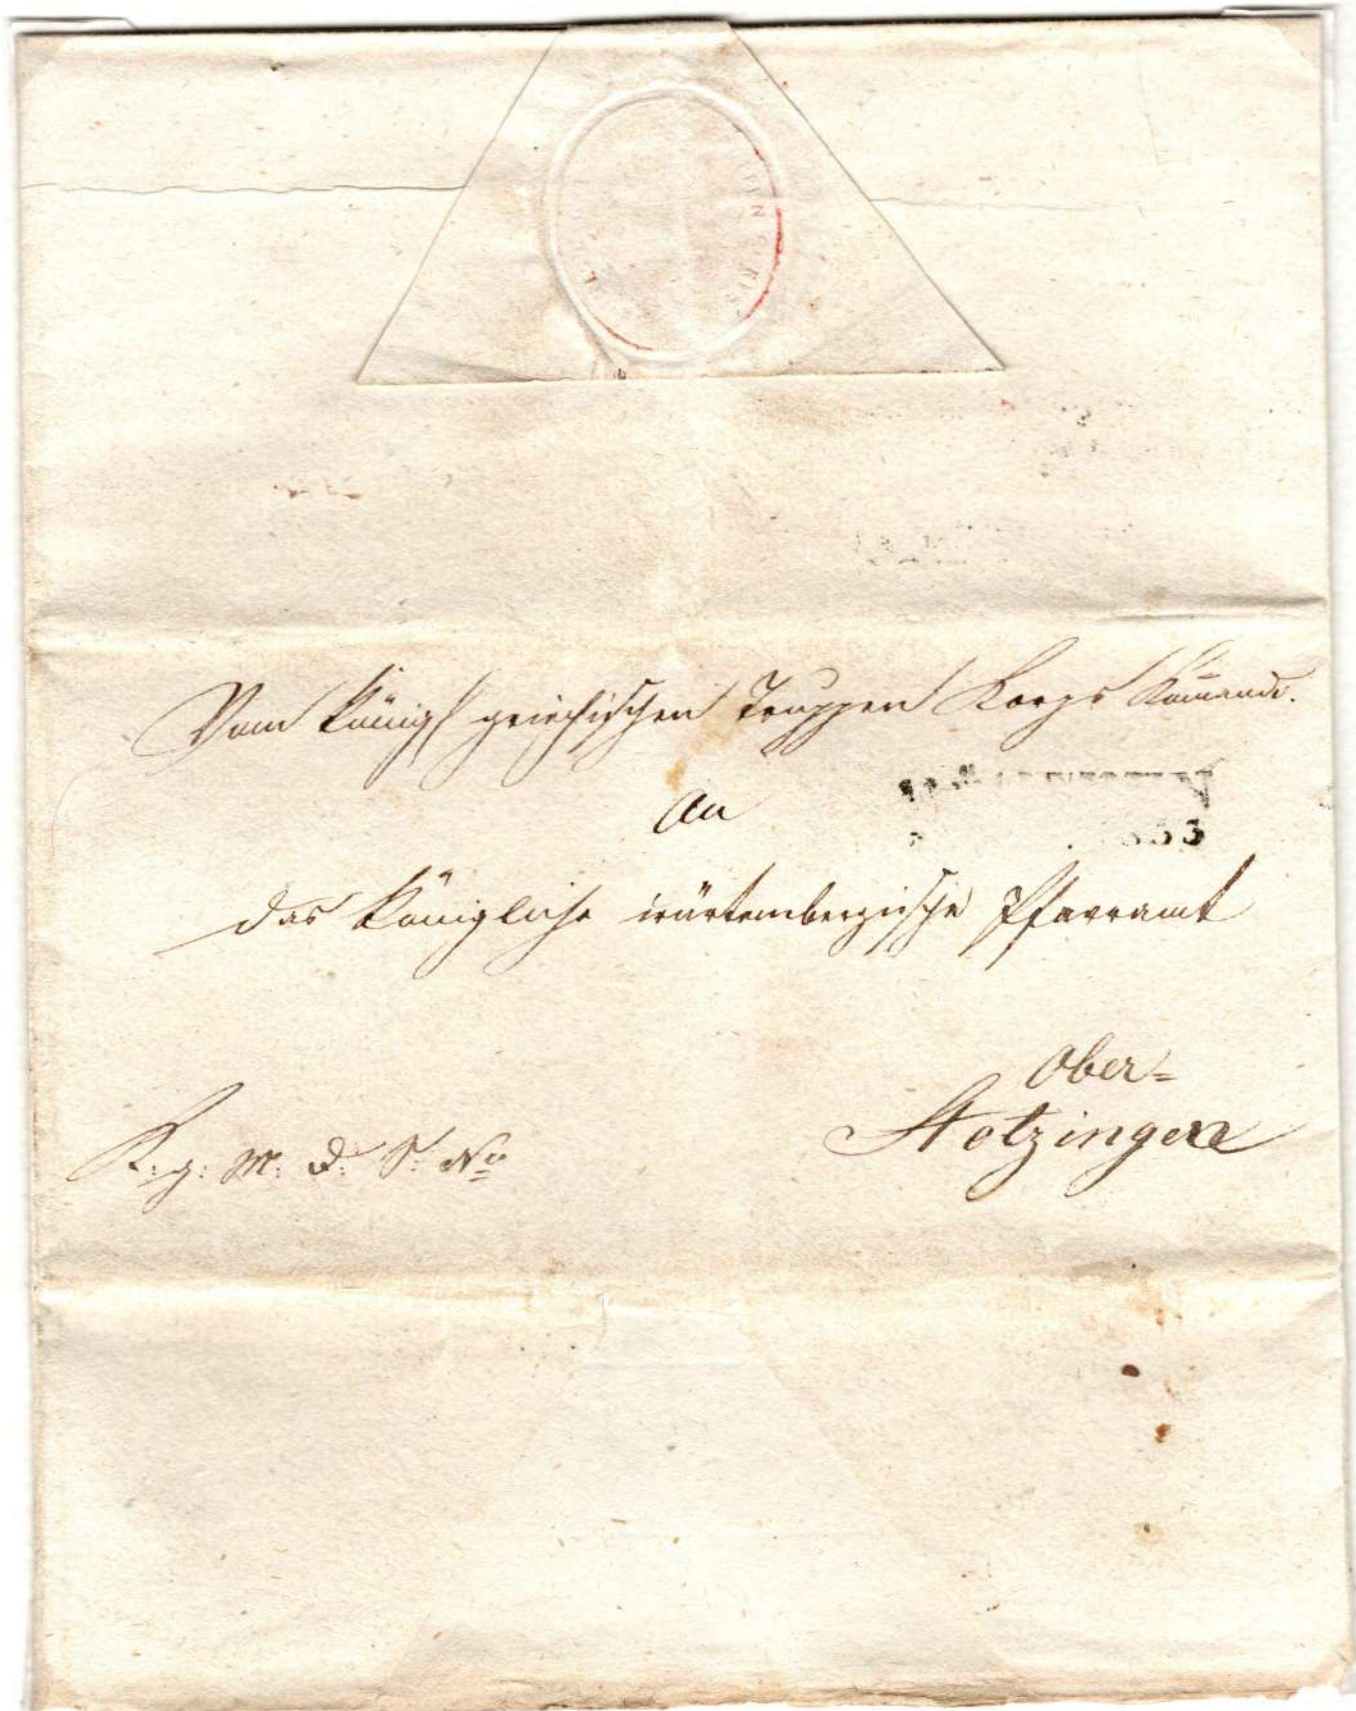 Vom königl griechischen Truppen Korps Kom̄ando.
An
das Königliche würtembergische Pfarramt
Ober=
Stotzingen
K. g. M. D. S. No